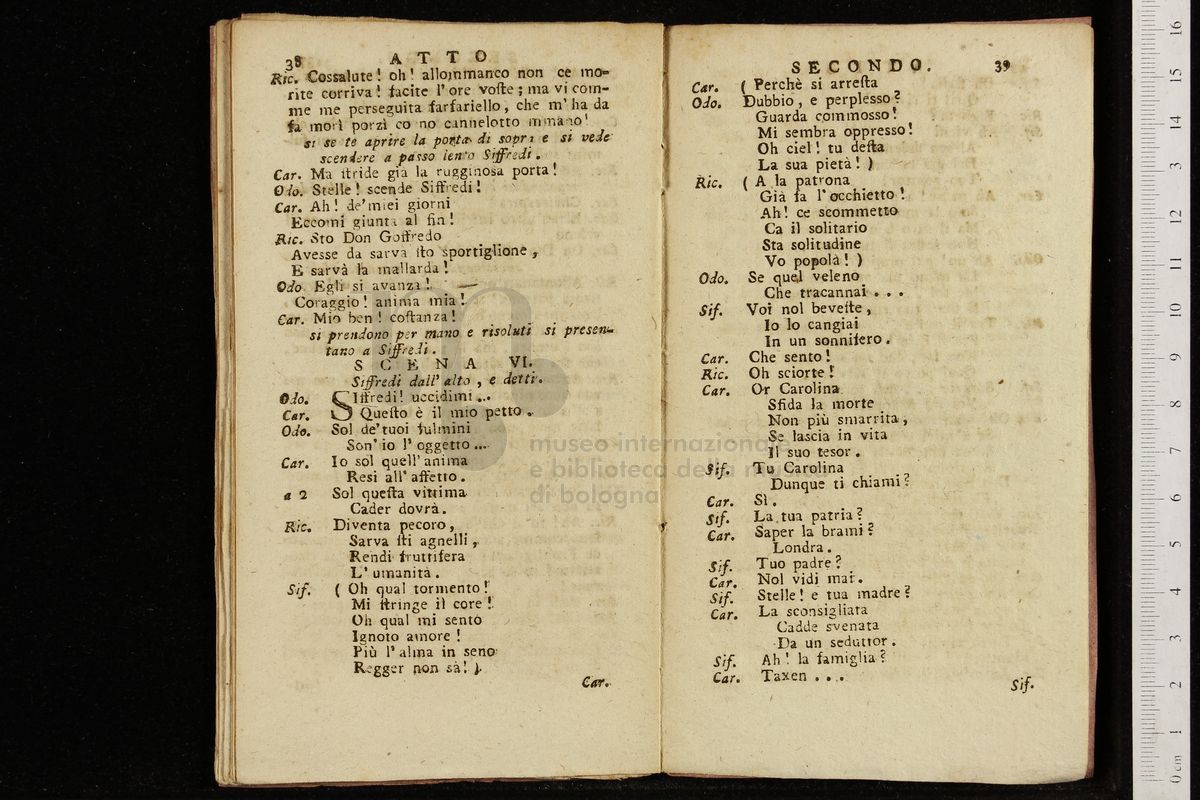 38 ATTO
Ric. Cossalute! oh! allommanco non ce mo-
rite corriva! facite l'ore voſte; ma vi com-
me me perseguita farfariello, che m'ha da
fa morì porzì co no cannelotto mmano!
si se te aprire la porta di sopra e si vede
scendere a passo lento Siffredi.
Car. Ma ſtride già la rugginosa porta!
Odo. Stelle! scende Siffredi!
Car. Ah! de'miei giorni
Eccomi giunta al fin!
Ric. Sto Don Goffredo
Avesse da sarva ſto sportiglione,
E sarvà la mallarda!
Odo. Egli si avanza!
Coraggio! anima mia!
Car. Mio ben! coſtanza!
si prendono per mano e risoluti si presen-
tano a Siffredi.
SCENA VI.
Siffredi dall' alto, e detti.
Odo. SIffredi! uccidimi...
Car. Queſto è il mio petto.
Odo. Sol de'tuoi fulmini
Son' io l'oggetto...
Car. Io sol quell'anima
Resi all'affetto.
a 2 Sol queſta vittima
Cader dovrà.
Ric. Diventa pecoro,
Sarva ſti agnelli,
Rendi fruttifera
L'umanità.
Sif. ( Oh qual tormento!
Mi ſtringe il core!
Oh qual mi sento
Ignoto amore!
Più l'alma in seno
Regger non sà! )
Car.
SECONDO. 39
Car. ( Perchè si arreſta
Odo. Dubbio, e perplesso?
Guarda commosso!
Mi sembra oppresso!
Oh ciel! tu deſta
La sua pietà! )
Ric. ( A la patrona
Già fa l'occhietto!
Ah! ce scommetto
Ca il solitario
Sta solitudine
Vo popolà! )
Odo. Se quel veleno
Che tracannai...
Sif. Voi nol beveſte,
Io lo cangiai
In un sonnifero.
Car. Che sento!
Ric. Oh sciorte!
Car. Or Carolina
Sfida la morte
Non più smarrita,
Se lascia in vita
Il suo tesor.
Sif. Tu Carolina
Dunque ti chiami?
Car. Sì.
Sif. La tua patria?
Car. Saper la brami?
Londra.
Sif. Tuo padre?
Car. Nol vidi mai.
Sif. Stelle! e tua madre?
Car. La sconsigliata
Cadde svenata
Da un seduttor.
Sif. Ah! la famiglia?
Car. Taxen...
Sif.
museo internazionale
e biblioteca della
di bologna
0 cm 1 2 3 4 5 6 7 8 9 10 11 12 13 14 15 16